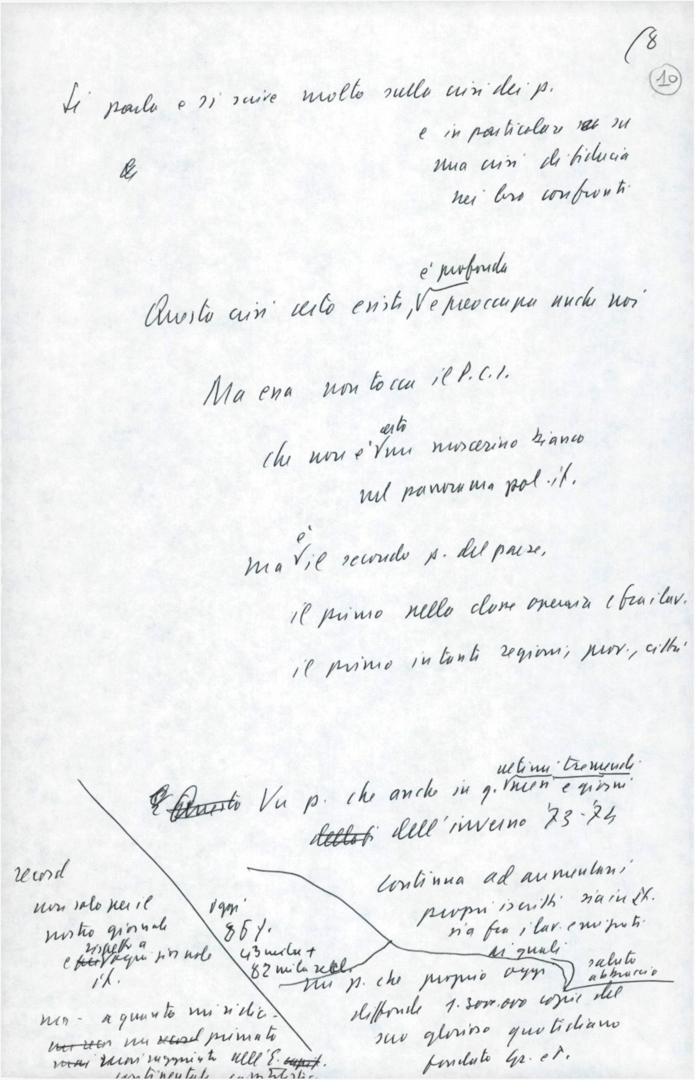 8
10
Si parla e si scrive molto sulla crisi dei p.
e in particolare su
una crisi di fiducia
nei loro confronti
è profonda
Questa crisi certo esiste, e preoccupa anche noi
Ma essa non tocca il P.C.I.
certo
che non è un moscerino bianco
nel panorama pol. it.
è
ma il secondo p. del paese,
il primo nella classe operaia e fra i lav.
il primo in tante regioni, prov., città
ultimi tremendi
Questo Un p. che anche in q. mesi e giorni
dell'inverno '73-'74
continua ad aumentare i
propri iscritti sia in It.
sia fra i lav. emigrati
ai quali
saluto
abbraccio
un p. che proprio oggi
diffonde 1.300.000 copie del
suo glorioso quotidiano
fondato Gr. e T.
record
non solo per il
nostro giornale
rispetto a
e ogni giornale
it.
ma - a quanto mi si dic-
un record primato
mai raggiunto nell'E.
continentale capitalistica
oggi
86%
43 mila +
82 mila